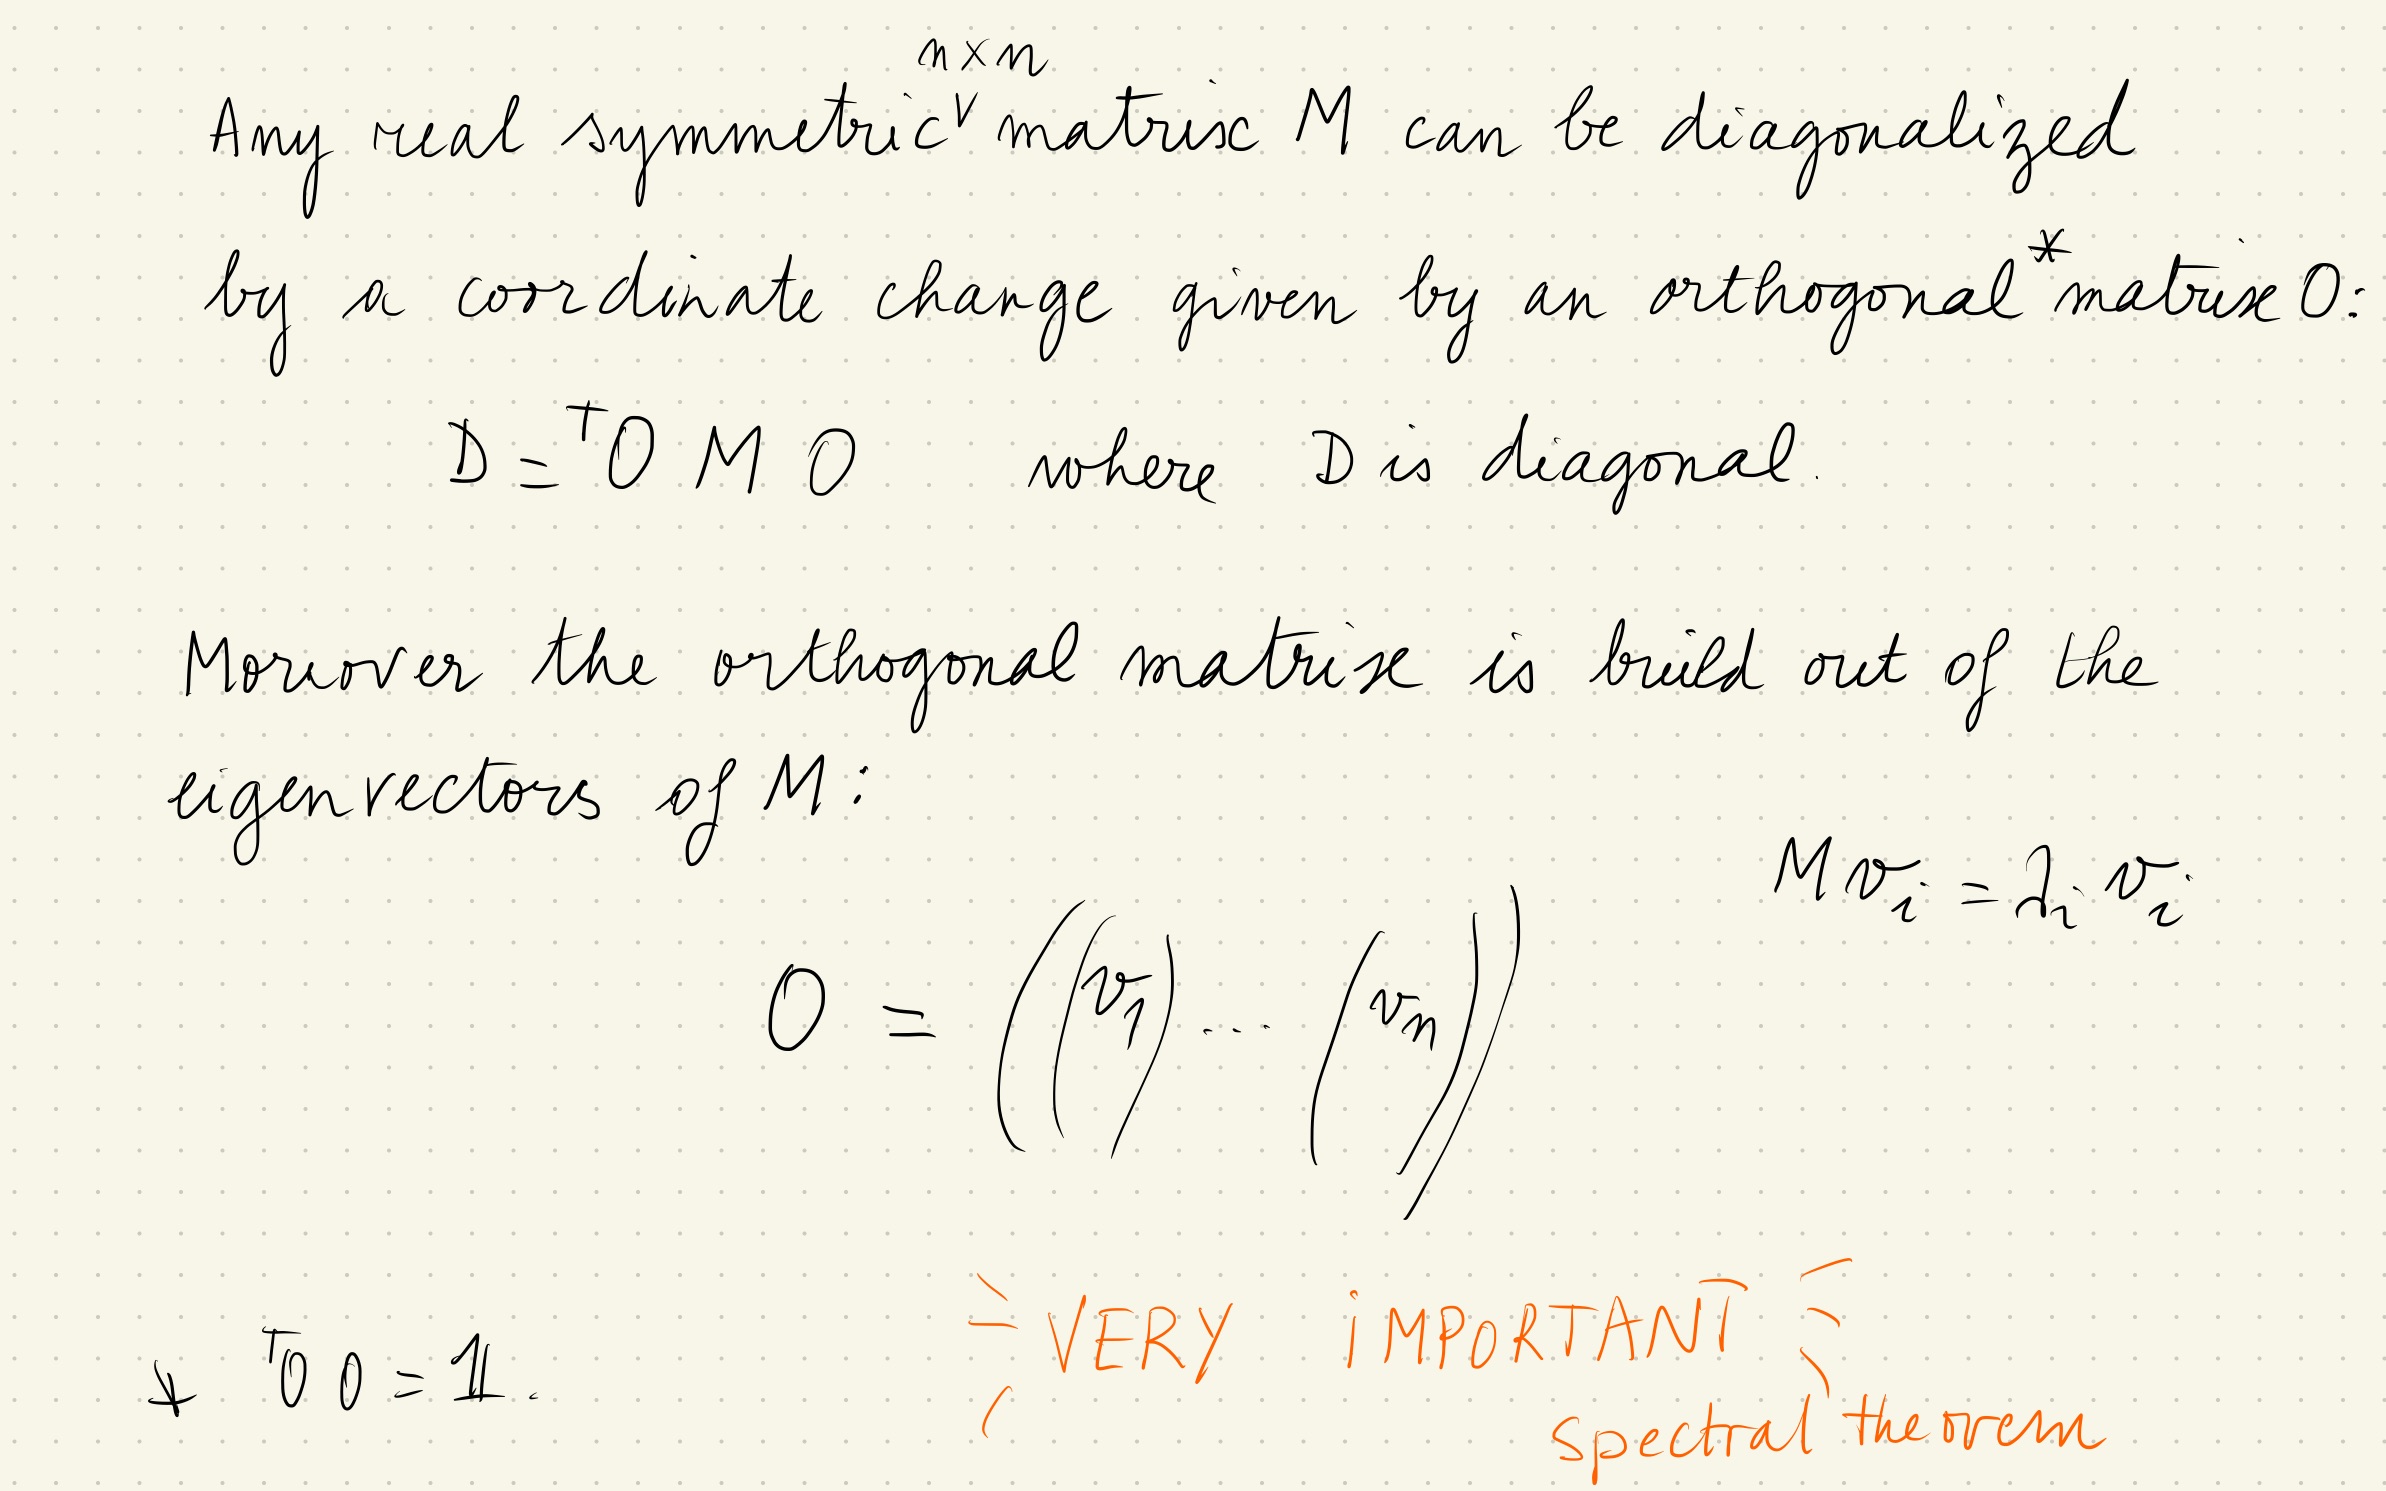 n×n
Any real symmetric ∨ matrix M can be diagonalized
by a coordinate change given by an orthogonal* matrix O:
D = ᵀO M O where D is diagonal.
Moreover the orthogonal matrix is build out of the
eigenvectors of M:
M vᵢ = λᵢ vᵢ
O = ((v₁) ... (vₙ))
VERY iMPORTANT
* ᵀO O = 𝟙.
spectral theorem